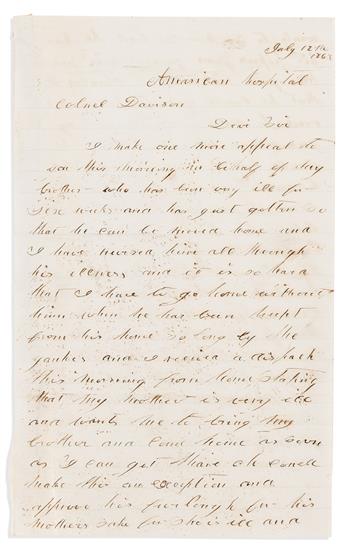 July 12th
186
American hospital
Colnel Davison
Dear Sir
I make one more appeal to
you this morning in behalf of my
brother who has been very ill for
six weeks and has just gotten so
that he can be moved home and
I have nursed him all through
his illness and it is so hard
that I have to go home without
him when he has been kept
from his home so long by the
yankes and I received a dispach
this morning from home stating
that my mother is very ill
and wants me to bring my
brother and come home as soon
as I can get there
make this an exception and
approve his furlough for his
mothers sake for she is ill and